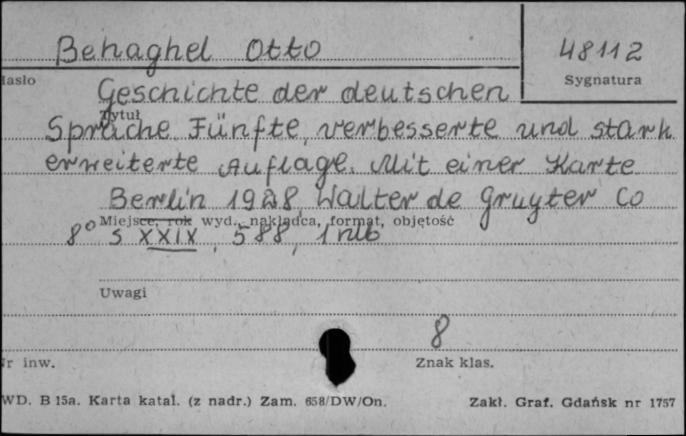 Behaghel Otto
48112
Hasło
Sygnatura
Geschichte der deutschen
Tytuł
Sprache Fünfte, verbesserte und stark
erweiterte Auflage. Mit einer Karte
Berlin 1928, Walter de Gruyter Co
Miejsce, rok wyd., nakładca, format, objętość
8° S XXIX, 588, 1 nlb
Uwagi
8
Nr inw.
Znak klas.
WD. B 15a. Karta katal. (z nadr.) Zam. 658/DW/On.
Zakł. Graf. Gdańsk nr 1757